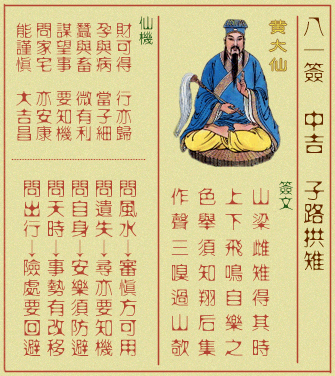 八一簽 中吉 子路拱雉
黄大仙
簽文
山梁雌雉得其時
上下飛鳴自樂之
色舉須知翔后集
作聲三嗅過山欹
仙機
財可得 行亦歸
孕與病 當子細
蠶與畜 微有利
謀望事 要知機
問家宅 亦安康
能謹慎 大吉昌
問風水→審慎方可用
問遺失→尋亦要知機
問自身→安樂須防避
問天時→事勢有改移
問出行→險處要回避